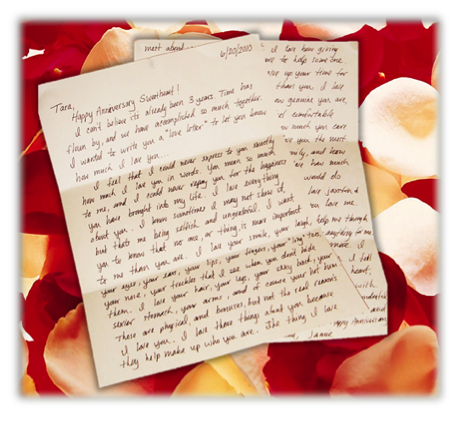 6/20/2010
Tara,
Happy Anniversary Sweetheart!
I can't believe its already been 3 years. Time has
flown by, and we have accomplished so much together.
I wanted to write you a "love letter" to let you know
how much I love you...
I feel that I could never express to you exactly
how much I love you in words. You mean so much
to me, and I could never repay you for the happiness
you have brought into my life. I love everything
about you. I know sometimes I may not show it,
but thats me being selfish and ungrateful. I want
you to know that no one, or thing, is more important
to me than you are. I love your smile, your laugh,
your eyes, your ears, your lips, your fingers, your tan,
your nose, your freckles that I see when you dont hide
them. I love your hair, your legs, your sexy back, your
sexier stomach, your arms, and of course your hot bum.
These are physical, and bonuses, but not the real reasons
I love you. I love these things about you because
they help make up who you are. The thing I love
most about
I love how giving
me to help someone
up your time for
than you. I love
how genuine you are,
comfortable
how much you care
you the most
and know
how much
would do
love
love me
help me through
anything for me
I feel
heart,
with
and
Happy Anniversary
, Jamie